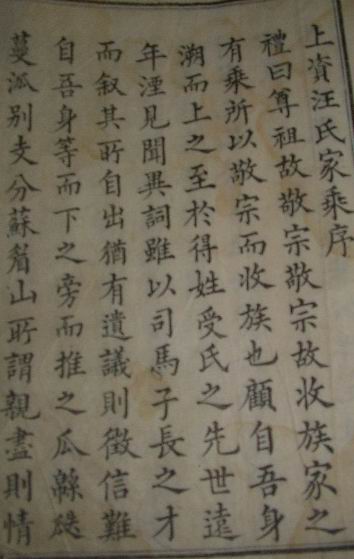 上資汪氏家乘序
禮曰尊祖故敬宗敬宗故收族家之
有乘所以敬宗而收族也顧自吾身
溯而上之至於得姓受氏之先世遠
年湮見聞異詞雖以司馬子長之才
而叙其所自出猶有遺議則徵信難
自吾身等而下之旁而推之瓜緜瓞
蔓泒别支分蘇眉山所謂親盡則情